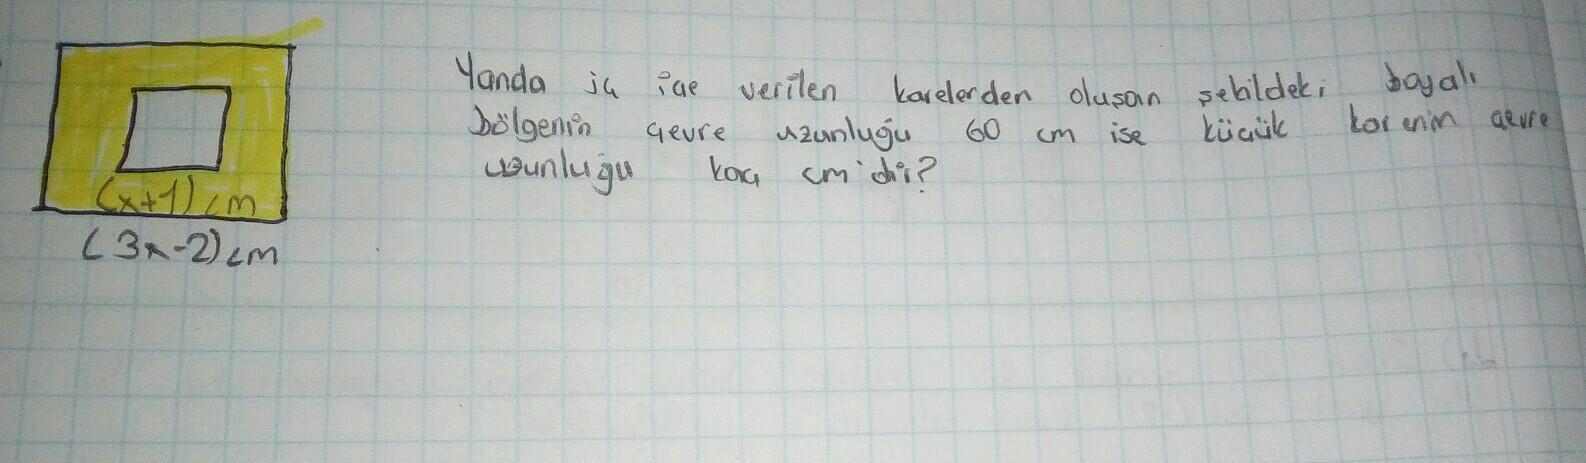 Yanda iç içe verilen karelerden oluşan şekildeki boyalı
bölgenin çevre uzunluğu 60 cm ise küçük karenin çevre
uzunluğu kaç cm'dir?
(x+1) cm
(3x-2) cm